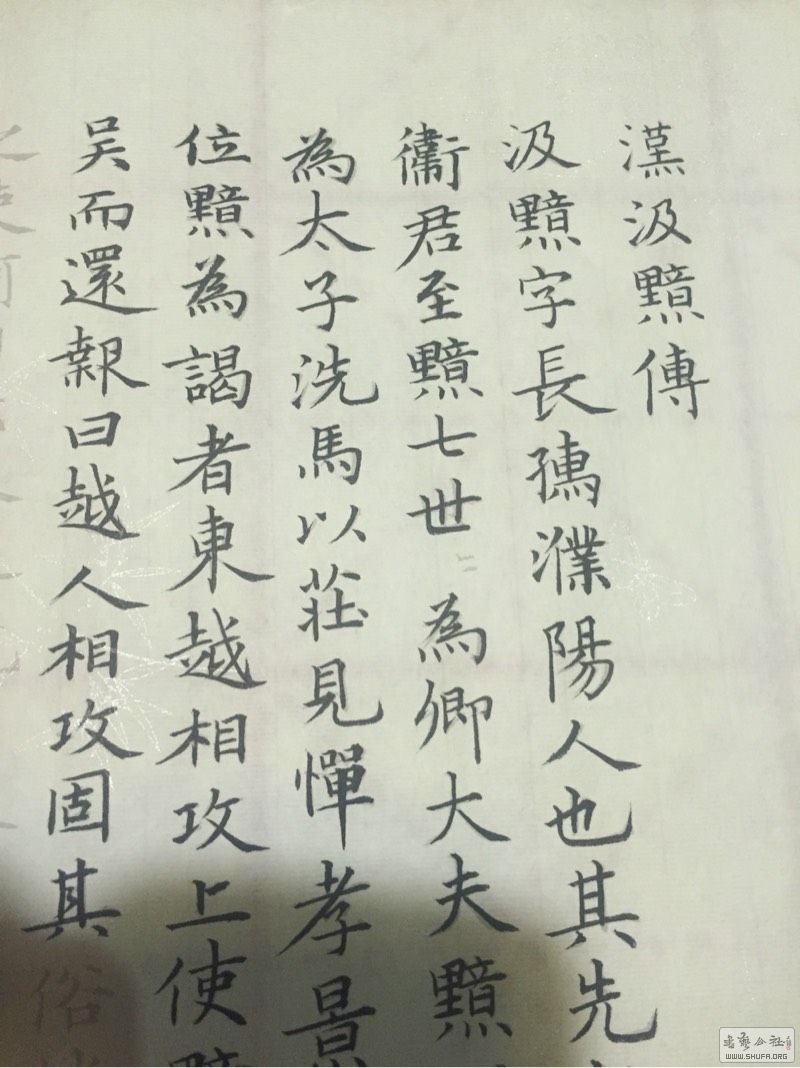 漢汲黯傳
汲黯字長孺濮陽人也其先
衛君至黯七世為卿大夫黯
為太子洗馬以莊見憚孝景
位黯為謁者東越相攻上使黯
吳而還報曰越人相攻固其俗
書藝公社
WWW.SHUFA.ORG